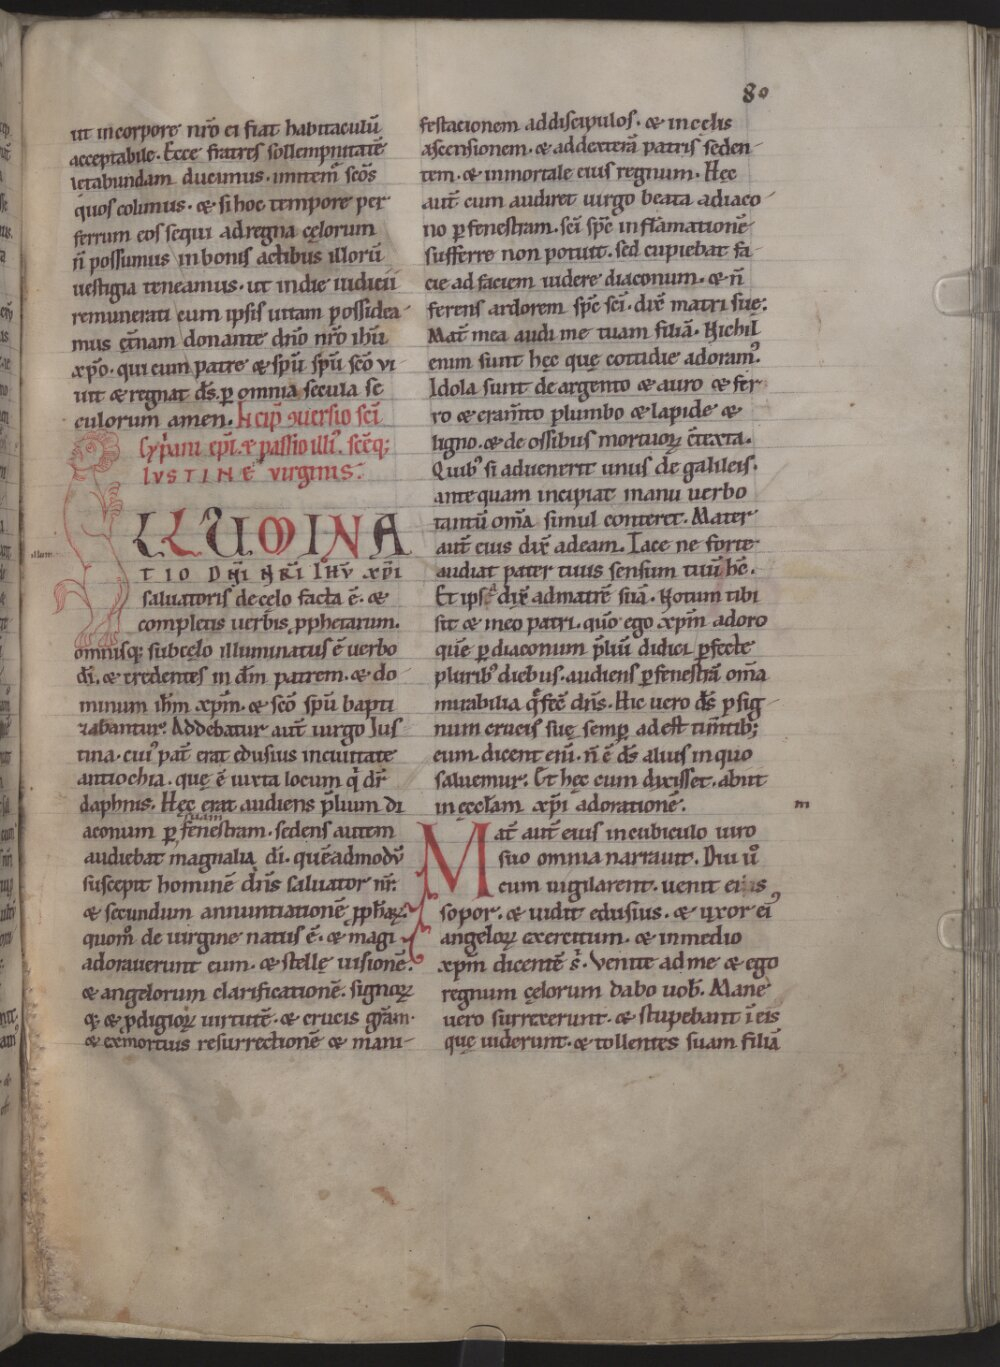 80
ut in corpore nr̄o ei fiat habitaculū
acceptabile. Ecce fratres sollempnitatē
letabundam ducimus. imitem̄ sc̄os
quos colimus. & si hoc tempore per
ferrum eos sequi ad regna cęlorum
n̄ possumus in bonis actibus illorū
uestigia teneamus. ut in die iudicii
remunerati cum ipsis uitam possidea
mus et̄nam donante dn̄o nr̄o ihū
xp̄o. qui cum patre & sp̄u sp̄u sc̄o vi
uit & regnat d̄s. ꝑ omnia secula se
culorum amen. Incip̄ ꝯuersio sc̄i
Cyp̄ani ep̄i. & passio illi᷒. sc̄ęq;
IVSTINE virginis.
ILLUMINA
TIO DN̄I NR̄I IHV̄ xp̄i
saluatoris de cęlo facta ē. &
completis uerbis ꝓphetarum.
omnisq; sub cęlo illuminatus ē uerbo
dī. & credentes in dm̄ patrem. & do
minum ihm̄ xpm̄. & sc̄o sp̄u bapti
zabantur. Addebatur aut̄ uirgo Jus
tina. cui᷒ pat̄ erat edusius in ciuitate
antiochia. quę ē iuxta locum q̇ dr̄
daphnis. Hęc erat audiens p̄lium di
suam
aconum ꝑ fenestram. sedens autem
audiebat magnalia dī. quēadmodū
suscepit hominē dn̄s saluator nr̄.
& secundum annuntiationē ꝓph̄aꝝ.
quom̊ de uirgine natus ē. & magi
adorauerunt eum. & stellę uisionē.
& angelorum clarificationē. signoꝝ
q; & ꝓdigioꝝ uirtutē. & crucis gr̄am.
& ex mortuis resurrectionē & mani-
illum
festacionem ad discipulos. & in celis
ascensionem. & ad dexterā patris seden-
tem. & inmortale eius regnum. Hec
aut̄ cum audiret uirgo beata a diaco
no ꝑ fenestram. sc̄i sp̄c inflamationē
sufferre non potuit. sed cupiebat fa
cie ad faciem uidere diaconum. & n̄
ferens ardorem sp̄c sc̄i. dix̄ matri suę:
Mat̄ mea audi me tuam filiā. Nichil
enim sunt hęc quę cottidie adoram᷒.
Idola sunt de argento & auro & fer
ro & eram̄to plumbo & lapide &
ligno. & de ossibus mortuoꝝ c̄texta.
Quib᷒ si aduenerit unus de galileis.
ante quam incipiat manu uerbo
tantū om̄a simul conteret. Mater
aut̄ eius dix̄ ad eam. Tace ne forte
audiat pater tuus sensum tuū hc̄.
Et ipsa dix̄ ad matrē suā. Notum tibi
sit & meo patri. quō ego xpm̄ adoro
quē ꝑ diaconum p̄liū didici ꝑfecte
plurib᷒ diebus. audiens ꝑ fenestrā om̄a
mirabilia q̄ fec̄ dn̄s. Hic uero d̄s ꝑ sig
num crucis suę semꝑ adest tim̄tib;
eum. dicent em̄. n̄ ē d̄s alius in quo
saluemur. Et hęc cum dixisset. abiit
in ęccl̄am xp̄i adorationē.
m
Mat̄ aut̄ eius in cubiculo uiro
suo omnia narrauit. Diu u̇
cum uigilarent. uenit eius
sopor. & uidit edusius. & uxor ei᷒
angeloꝝ exercitum. & in medio
xpm̄ dicentē s̄. Venite ad me & ego
regnum cęlorum dabo uob̄. Mane
uero surrexerunt. & stupebant ī eis
quę uiderunt. & tollentes suam filiā